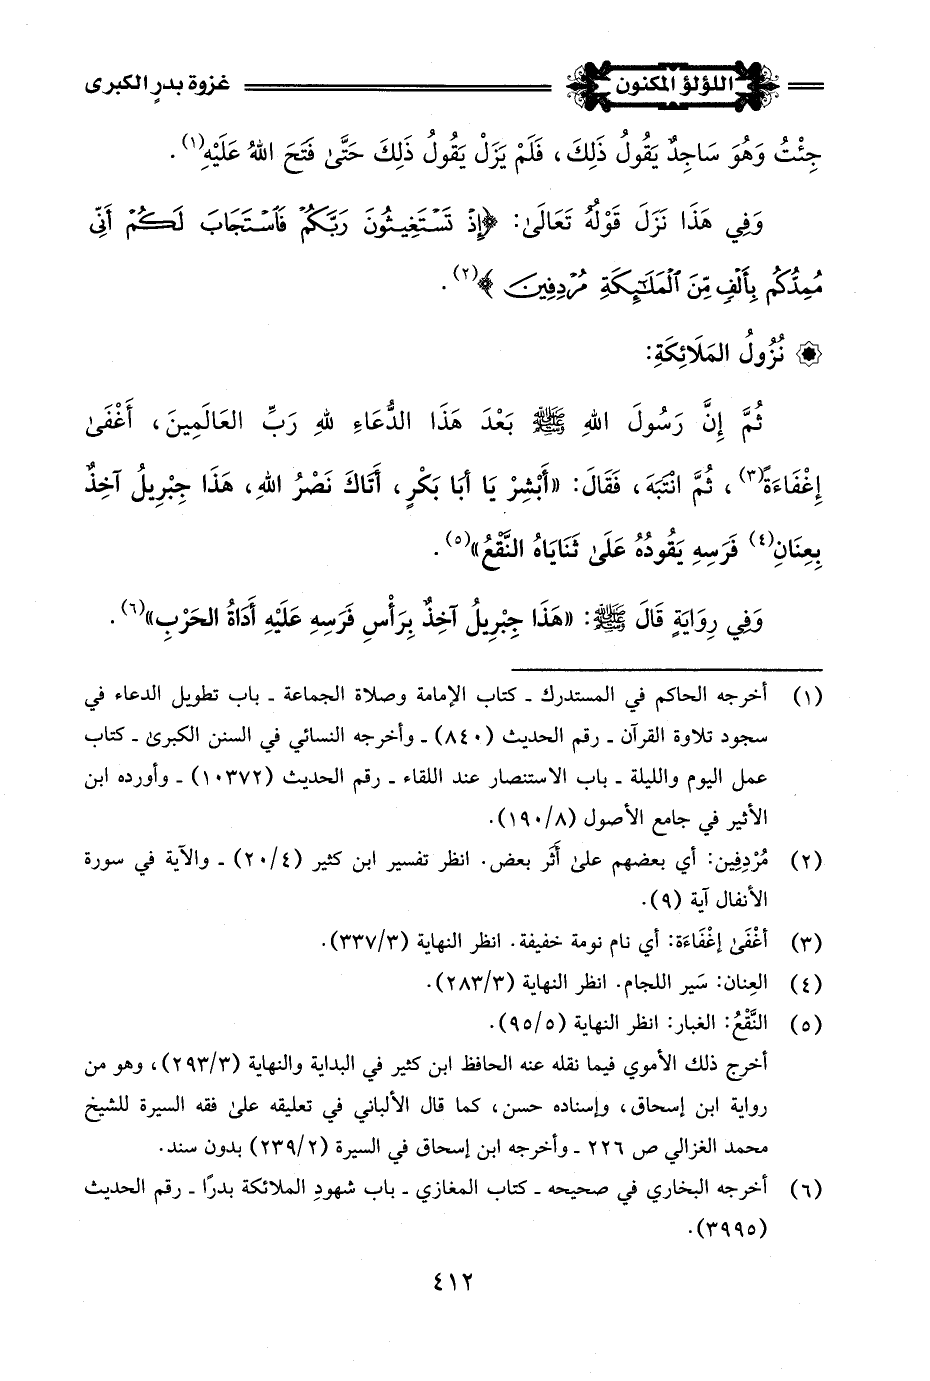 اللؤلؤ المكنون
غزوة بدرٍ الكبرى
جِئْتُ وَهُوَ سَاجِدٌ يَقُولُ ذَلِكَ، فَلَمْ يَزَلْ يَقُولُ ذَلِكَ حَتَّىٰ فَتَحَ اللهُ عَلَيْهِ(١).
وَفِي هَذَا نَزَلَ قَوْلُهُ تَعَالَىٰ: ﴿إِذْ تَسْتَغِيثُونَ رَبَّكُمْ فَٱسْتَجَابَ لَكُمْ أَنِّي
مُمِدُّكُم بِأَلْفٍ مِّنَ ٱلْمَلَٰٓئِكَةِ مُرْدِفِينَ﴾(٢).
نُزُولُ المَلَائِكَةِ:
ثُمَّ إِنَّ رَسُولَ اللهِ ﷺ بَعْدَ هَذَا الدُّعَاءِ للهِ رَبِّ العَالَمِينَ، أَغْفَىٰ
إِغْفَاءَةً(٣)، ثُمَّ انْتَبَهَ، فَقَالَ: «أَبْشِرْ يَا أبَا بَكْرٍ، أَتَاكَ نَصْرُ اللهِ، هَذَا جِبْرِيلُ آخِذٌ
بِعِنَانِ(٤) فَرَسِهِ يَقُودُهُ عَلَىٰ ثَنَايَاهُ النَّقْعُ»(٥).
وَفِي رِوَايَةٍ قَالَ ﷺ: «هَذَا جِبْرِيلُ آخِذٌ بِرَأْسِ فَرَسِهِ عَلَيْهِ أَدَاةُ الحَرْبِ»(٦).
(١) أخرجه الحاكم في المستدرك ـ كتاب الإمامة وصلاة الجماعة ـ باب تطويل الدعاء في
سجود تلاوة القرآن ـ رقم الحديث (٨٤٠) ـ وأخرجه النسائي في السنن الكبرىٰ ـ كتاب
عمل اليوم والليلة ـ باب الاستنصار عند اللقاء ـ رقم الحديث (١٠٣٧٢) ـ وأورده ابن
الأثير في جامع الأصول (١٩٠/٨).
(٢) مُرْدِفِين: أي بعضهم علىٰ أَثَر بعض. انظر تفسير ابن كثير (٢٠/٤) ـ والآية في سورة
الأنفال آية (٩).
(٣) أغْفَىٰ إغْفَاءَة: أي نام نومة خفيفة. انظر النهاية (٣٣٧/٣).
(٤) العِنان: سَير اللجام. انظر النهاية (٢٨٣/٣).
(٥) النَّقْعُ: الغبار: انظر النهاية (٩٥/٥).
أخرج ذلك الأموي فيما نقله عنه الحافظ ابن كثير في البداية والنهاية (٢٩٣/٣)، وهو من
رواية ابن إسحاق، وإسناده حسن، كما قال الألباني في تعليقه علىٰ فقه السيرة للشيخ
محمد الغزالي ص ٢٢٦ ـ وأخرجه ابن إسحاق في السيرة (٢٣٩/٢) بدون سند.
(٦) أخرجه البخاري في صحيحه ـ كتاب المغازي ـ باب شهودِ الملائكة بدرًا ـ رقم الحديث
(٣٩٩٥).
٤١٢